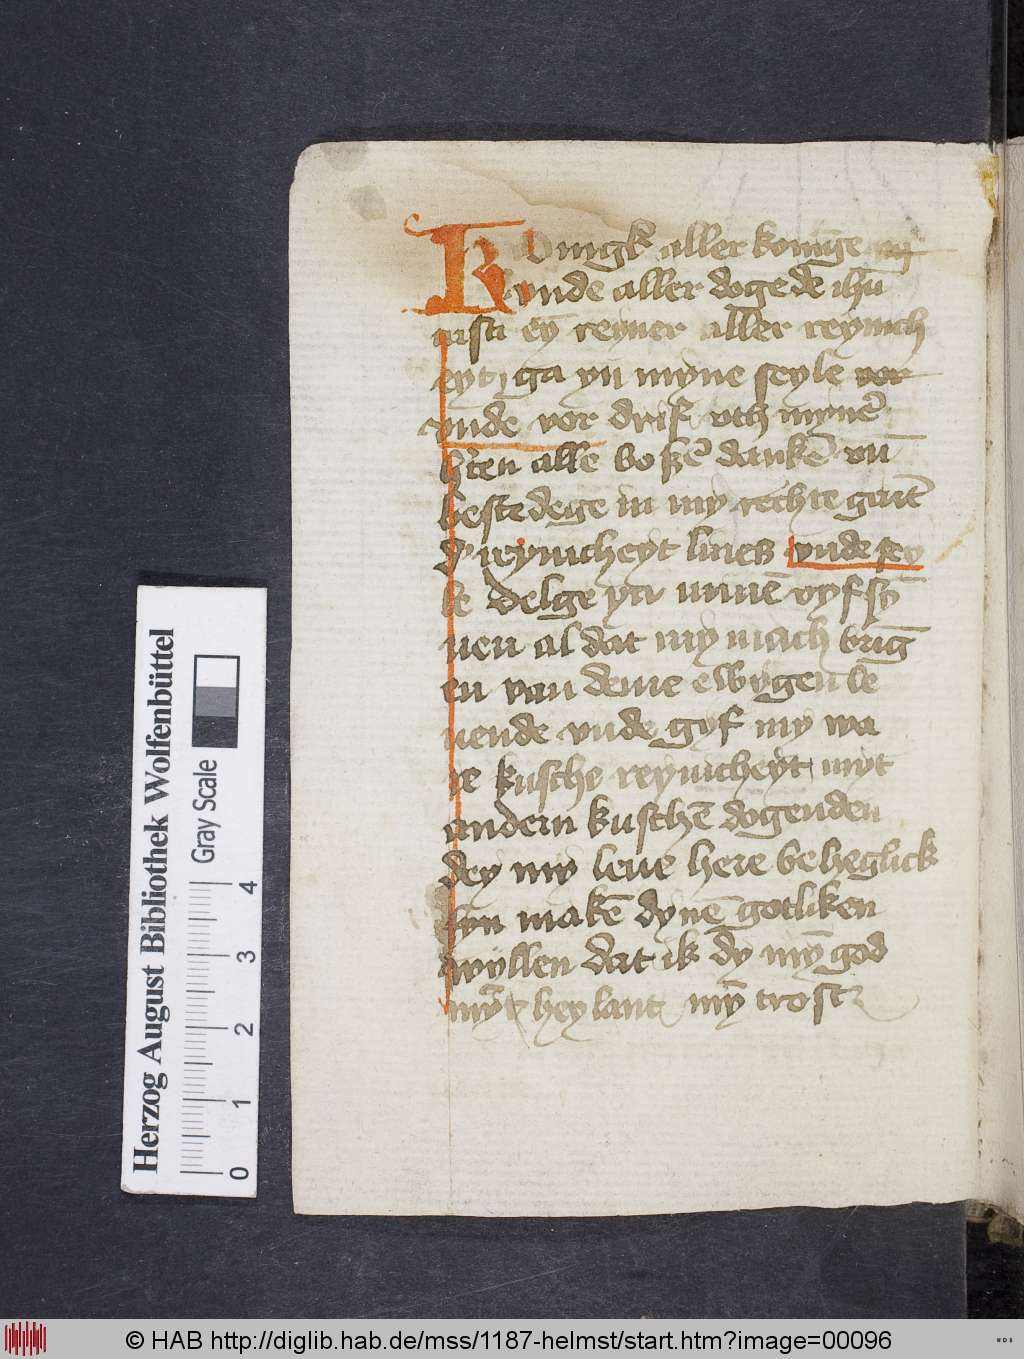 Konigk aller konīge
vnde aller dogede ihū
cristi eȳ reyner aller reynich
eyt ga yn myne seyle vor
vnde vor drif vth mynē
hten alle boßē dankē vn̄
bestedege in my rechte gan
reynicheyt lines vnde sey
le delge yn vyfsȳ
nen al dat my mach brīg
en van deme ewygen le
uende vnde gyf my wa
re kusche reynicheyt myt
andern kuschē dogenden
dey my leue here beheglick
syn makē dynē gotliken
wyllen dat ik dy mȳ god
heylant mȳ trost
Herzog August Bibliothek Wolfenbüttel
Gray Scale
0 1 2 3 4
© HAB http://diglib.hab.de/mss/1187-helmst/start.htm?image=00096
WDB